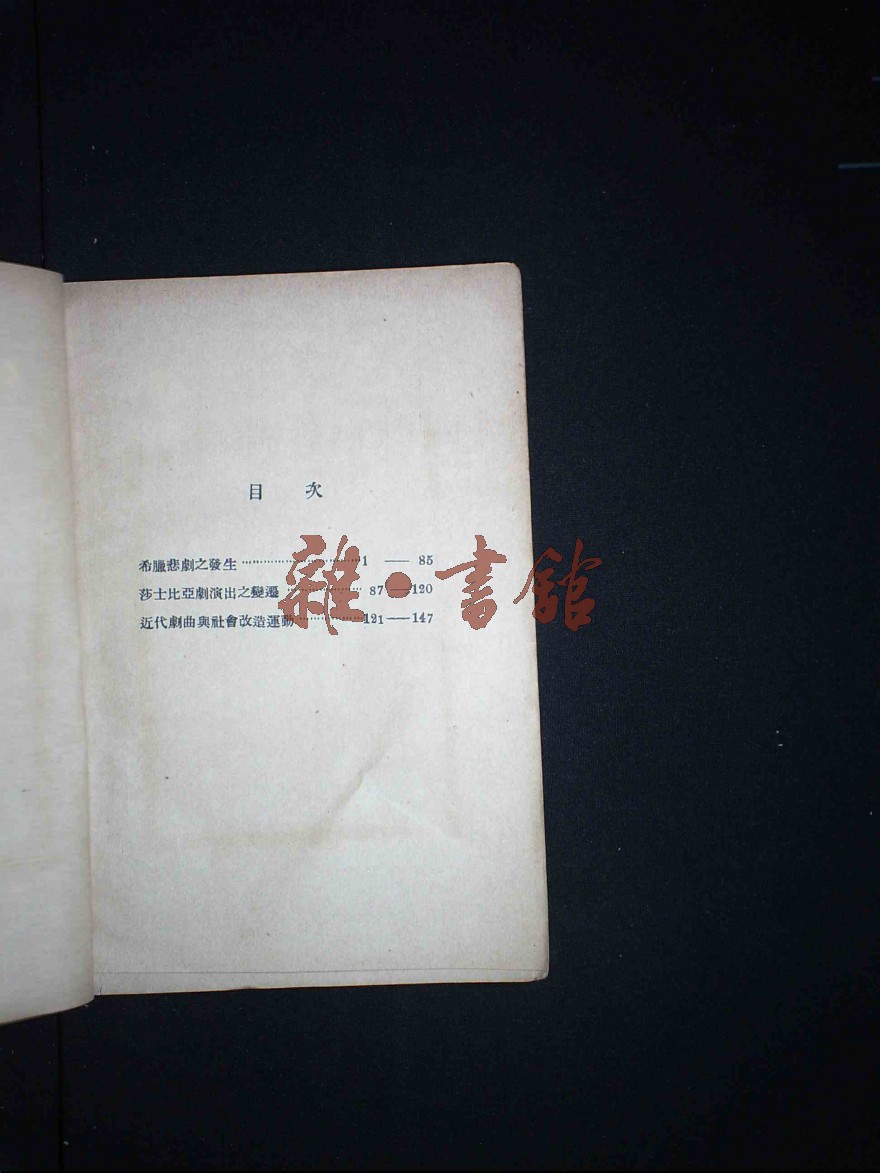 目 次
希臘悲劇之發生 …………………………1 —— 85
莎士比亞劇演出之變遷 ………………… 87——120
近代劇曲與社會改造運動………………121——147
雜·書館